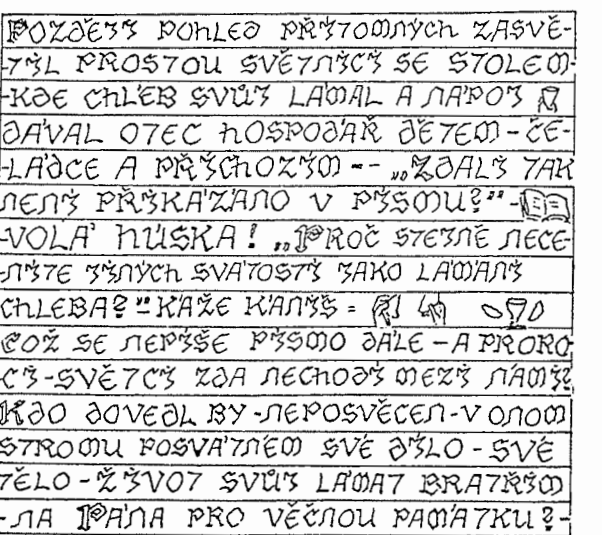 POZDĚJI POHLED PŘÍTOMNÝCH ZASVĚ-
-TIL PROSTOU SVĚTNICI SE STOLEM-
-KDE CHLÉB SVŮJ LÁMAL A NÁPOJ
DÁVAL OTEC HOSPODÁŘ DĚTEM - ČE-
-LÁDCE A PŘÍCHOZÍM -- „ZDALI TAK
NENÍ PŘIKÁZÁNO V PÍSMU?" -
-VOLÁ HÚSKA! „PROČ STEJNĚ NECE-
-NÍTE JINÝCH SVÁTOSTÍ JAKO LÁMANÍ
CHLEBA?" KÁŽE KÁNIŠ =
COŽ SE NEPÍŠE PÍSMO DÁLE - A PRORO-
CI-SVĚTCI ZDA NECHODÍ MEZI NÁMI?
KDO DOVEDL BY -NEPOSVĚCEN-V ONOM
STROMU POSVÁTNÉM SVÉ DÍLO - SVÉ
TĚLO - ŽIVOT SVŮJ LÁMAT BRATŘÍM
-NA PÁNA PRO VĚČNOU PAMÁTKU? -